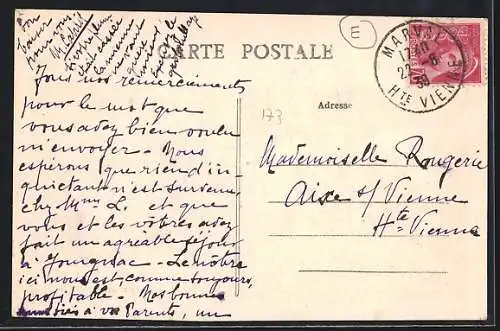 Un
baiser
pour vous
CARTE POSTALE
E
17H30
22-8
38
HTE VIENNE
Tous nos remerciements
pour le mot que
vous avez bien voulu
m'envoyer - Nous
espérons que rien d'in-
quiétant n'est survenu
chez Mme L. et que
vous et les vôtres avez
fait un agréable séjour
à Jourgnac - Le nôtre
ici nous est, comme toujours,
profitable - Nos bonnes
à vos Parents, un
Adresse
173
Mademoiselle Rougerie
Aixe s/ Vienne
Hte Vienne